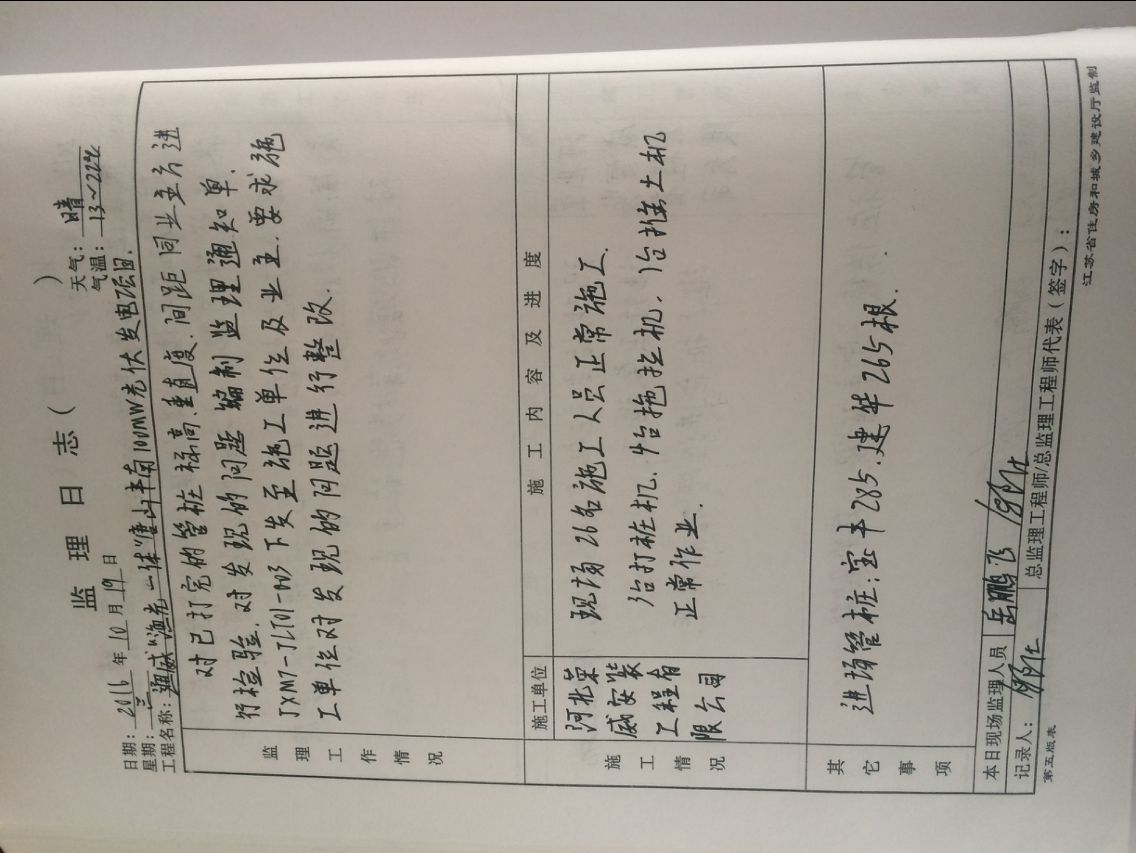 监 理 日 志 ( )
日期: 2016 年 10 月 19 日 天气: 晴
星期: 三 气温: 13~22℃
工程名称: "渔光一体"唐山丰南100MW光伏发电项目.
监理工作情况
对已打完的管桩标高、垂直度、间距同业主方进
行检验.对发现的问题编制监理通知单.
JXM7-JLT01-003下发至施工单位及业主.要求施
工单位对发现的问题进行整改.
施工情况
施工单位 施 工 内 容 及 进 度
河北荣
威安装
工程有
限公司
现场26名施工人员正常施工.
3台打桩机.4台拖拉机.1台推土机
正常作业.
其它事项
进场管桩:宝丰285.建华265根.
本日现场监理人员 岳鹏飞
记录人: 总监理工程师/总监理工程师代表(签字):
第五版表 江苏省住房和城乡建设厅监制